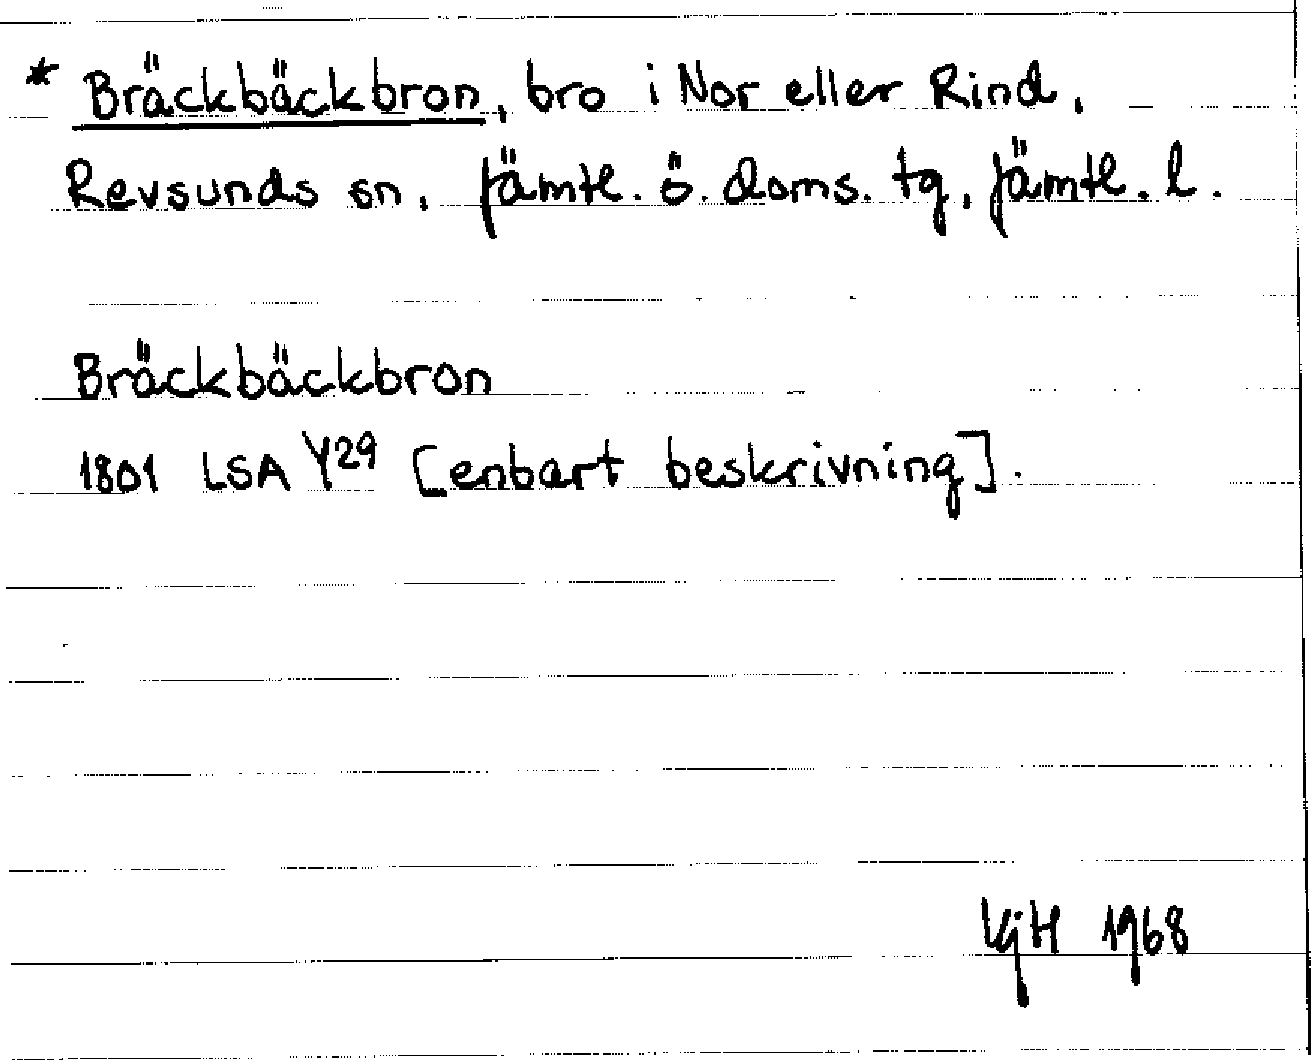 * Bräckbäckbron, bro i Nor eller Rind,
Revsunds sn, Jämtl. ö. doms. tg, Jämtl. l.
Bräckbäckbron
1801 LSA Y29 [enbart beskrivning].
KjH 1968